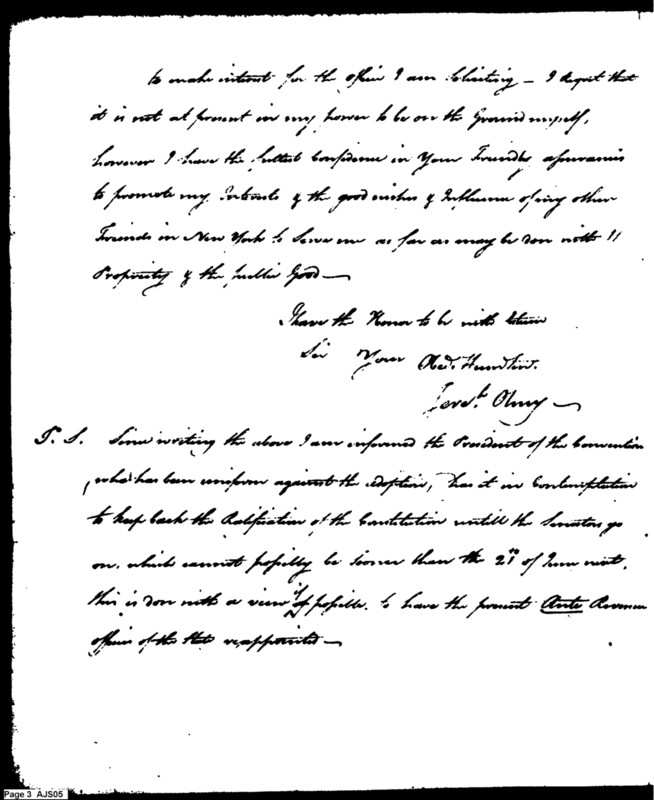 to make interest for the office I am Soliciting – I regret that
it is not at present in my power to be on the Ground myself,
however I have the fullest Confidence in Your Friendly assurances
to promote my Interests & the good wishes & Influence of my other
Friends in New York to Serve me as far as may be don with
Propriety & the public Good —
I have the Honor to be with Esteem
Sir Your Obed. Hum Ser.
Jerem.h Olney —
P. S. Since writing the above I am informed the President of the Convention
, who has been uniform against the adoption, has it in Contemplation
to keep back the Ratification of the Constitution untill the Senators go
on, which cannot possibly be sooner than the 21st of June next.
this is don with a view if possible, to have the present Ante Revenue
officers of the State reappointed —
Page 3 AJS05